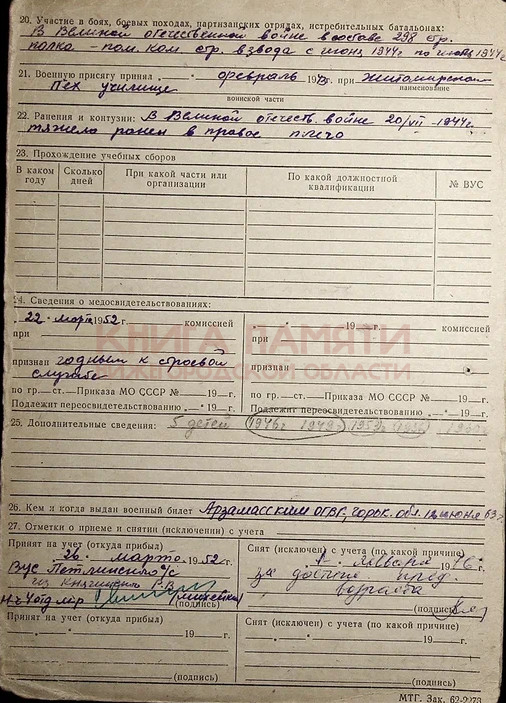 20. Участие в боях, боевых походах, партизанских отрядах, истребительных батальонах:
В Великой отечественной войне в составе 298 стр.
полка - пом. ком. стр. взвода с июня 1944 г. по июль 1944 г.
21. Военную присягу принял . февраль 1943 г. при Житомирском
наименование
Пех училище
воинской части
22. Ранения и контузии: В Великой отечеств. войне 20/VII - 1944 г.
тяжело ранен в правое плечо
23. Прохождение учебных сборов
В каком году
Сколько дней
При какой части или организации
По какой должностной квалификации
№ ВУС
24. Сведения о медосвидетельствованиях:
22. марта 1952 г. комиссией
при
признан годным к строевой
службе
по гр. ст. Приказа МО СССР № 19 г.
Подлежит переосвидетельствованию . 19 г.
19 г. комиссией
при
признан
по гр. ст. Приказа МО СССР № 19 г.
Подлежит переосвидетельствованию . 19 г.
КНИГА ПАМЯТИ
НИЖЕГОРОДСКОЙ ОБЛАСТИ
25. Дополнительные сведения: 5 детей 1946 г 1949 г
26. Кем и когда выдан военный билет Арзамасским ОГВК, горьк. обл. 12 июня 63 г.
27. Отметки о приеме и снятии (исключении) с учета
Принят на учет (откуда прибыл)
26. марта 1952 г.
ВУС
из Княгининского Р.В.
(подпись)
Снят (исключен) с учета (по какой причине)
1. января 1976 г.
за достиж. пред.
возраста
(подпись)
Принят на учет (откуда прибыл)
19 г.
(подпись)
Снят (исключен) с учета (по какой причине)
19 г.
(подпись)
МТГ. Зак. 62-2273